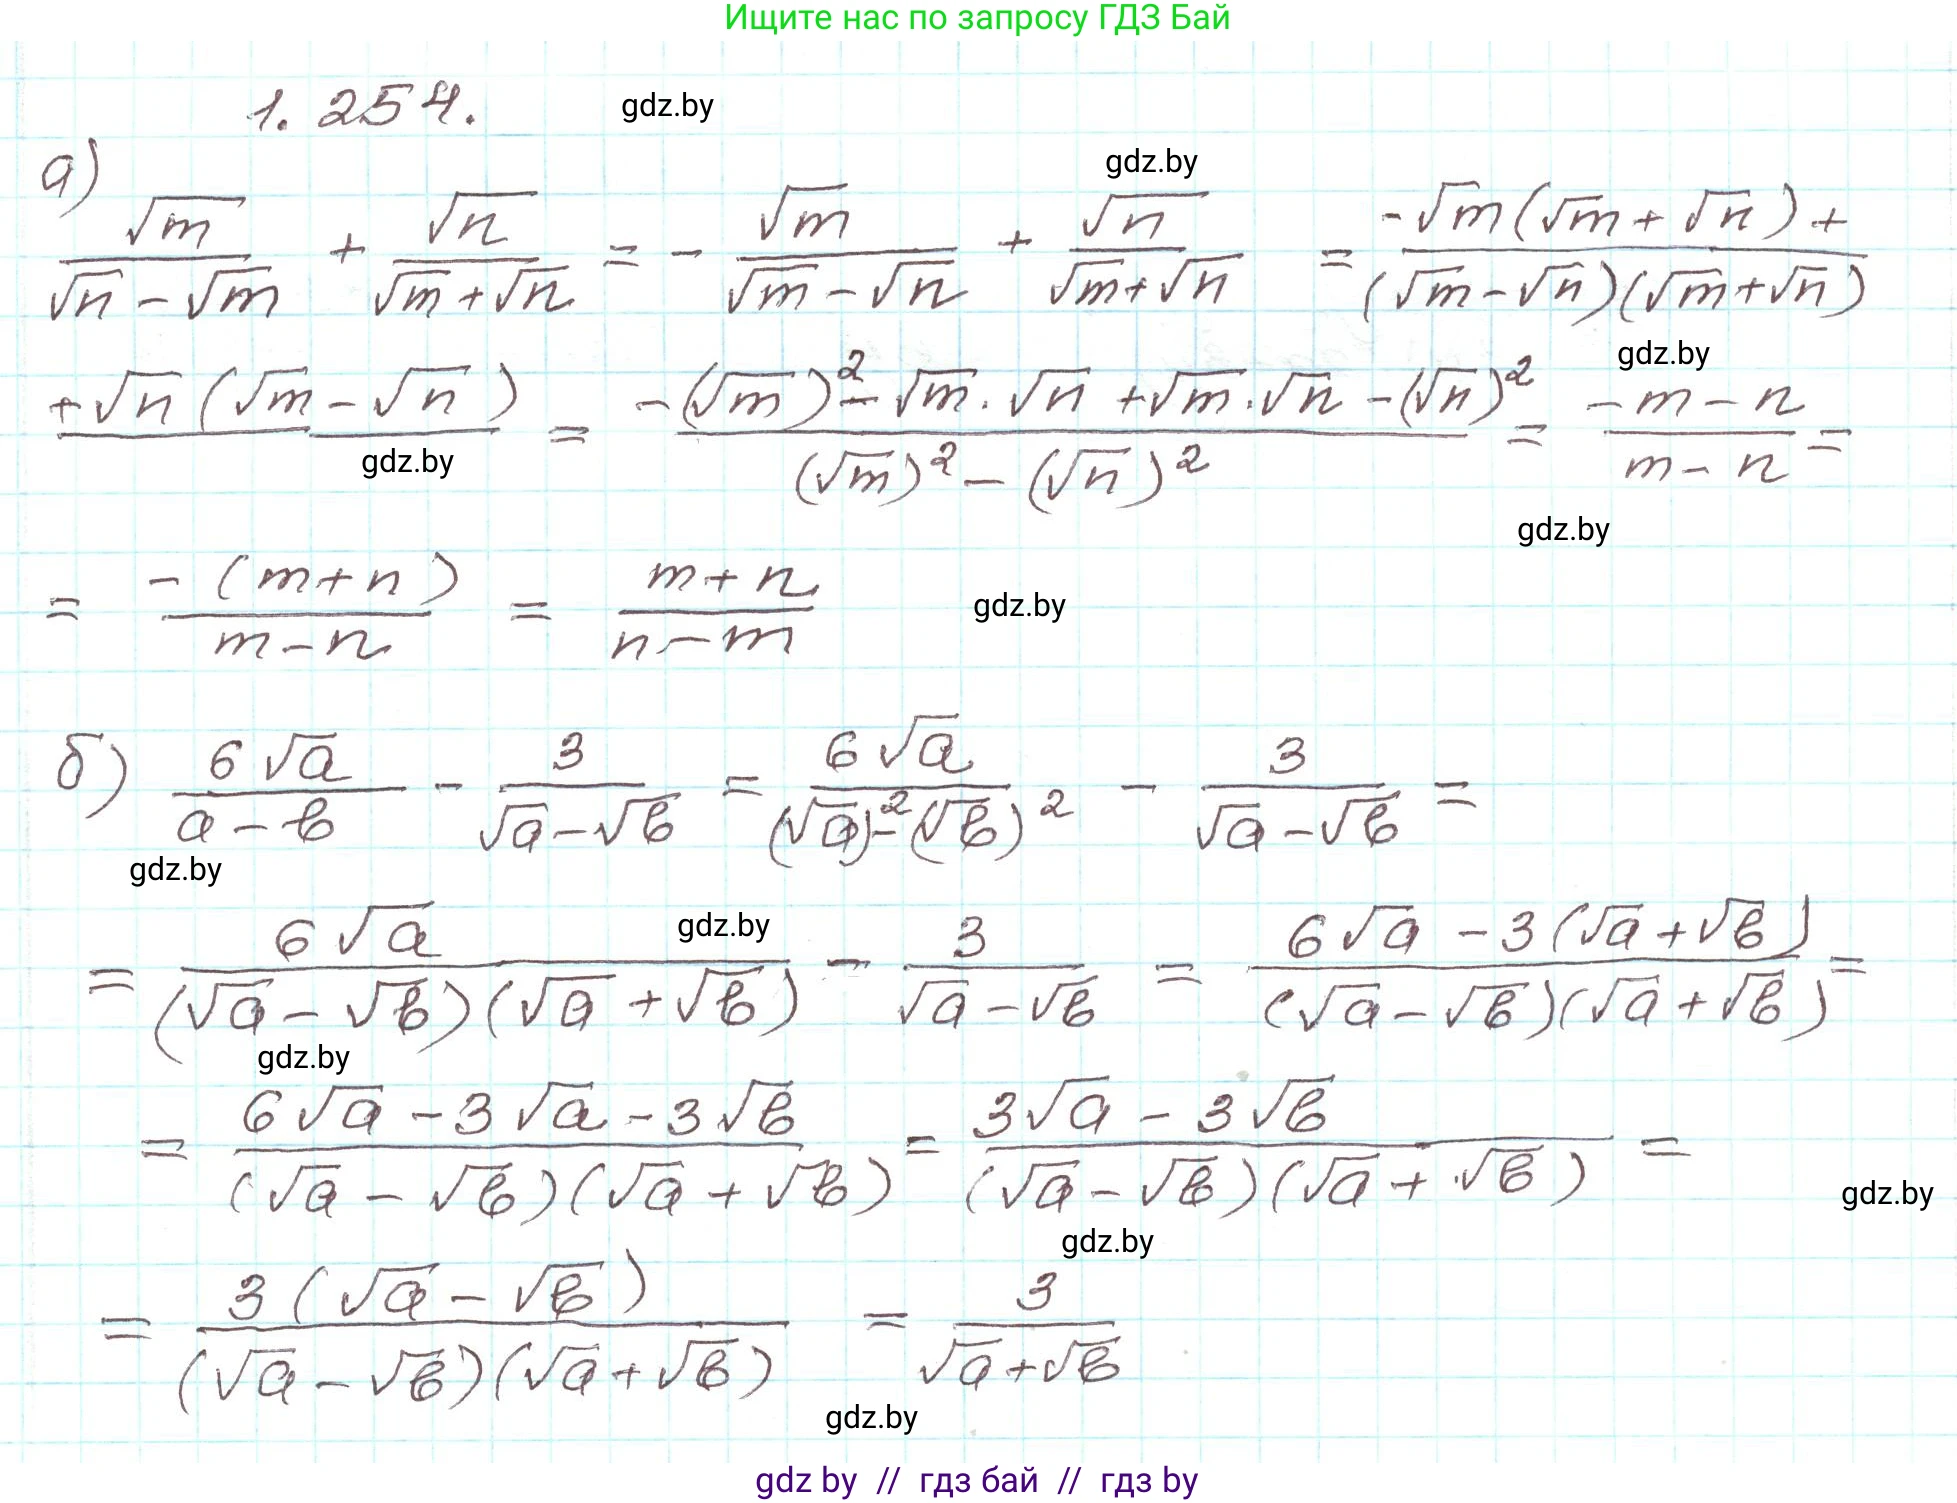 Ищите нас по запросу ГДЗ Бай
1. 254. gdz.by
а) gdz.by
√m/(√n − √m) + √n/(√m + √n) = − √m/(√m − √n) + √n/(√m + √n) = (−√m(√m + √n) +)/((√m − √n)(√m + √n))
gdz.by
+√n(√m − √n) = (−(√m)² − √m · √n + √m · √n − (√n)²)/((√m)² − (√n)²) = (−m − n)/(m − n) =
gdz.by
gdz.by
= −(m + n)/(m − n) = (m + n)/(n − m) gdz.by
б) 6√a/(a − b) − 3/(√a − √b) = 6√a/((√a)² − (√b)²) − 3/(√a − √b) =
gdz.by
gdz.by
= 6√a/((√a − √b)(√a + √b)) − 3/(√a − √b) = (6√a − 3(√a + √b))/((√a − √b)(√a + √b)) =
gdz.by
= (6√a − 3√a − 3√b)/((√a − √b)(√a + √b)) = (3√a − 3√b)/((√a − √b)(√a + √b)) =
gdz.by
gdz.by
= 3(√a − √b)/((√a − √b)(√a + √b)) = 3/(√a + √b)
gdz.by
gdz by // гдз бай // гдз by